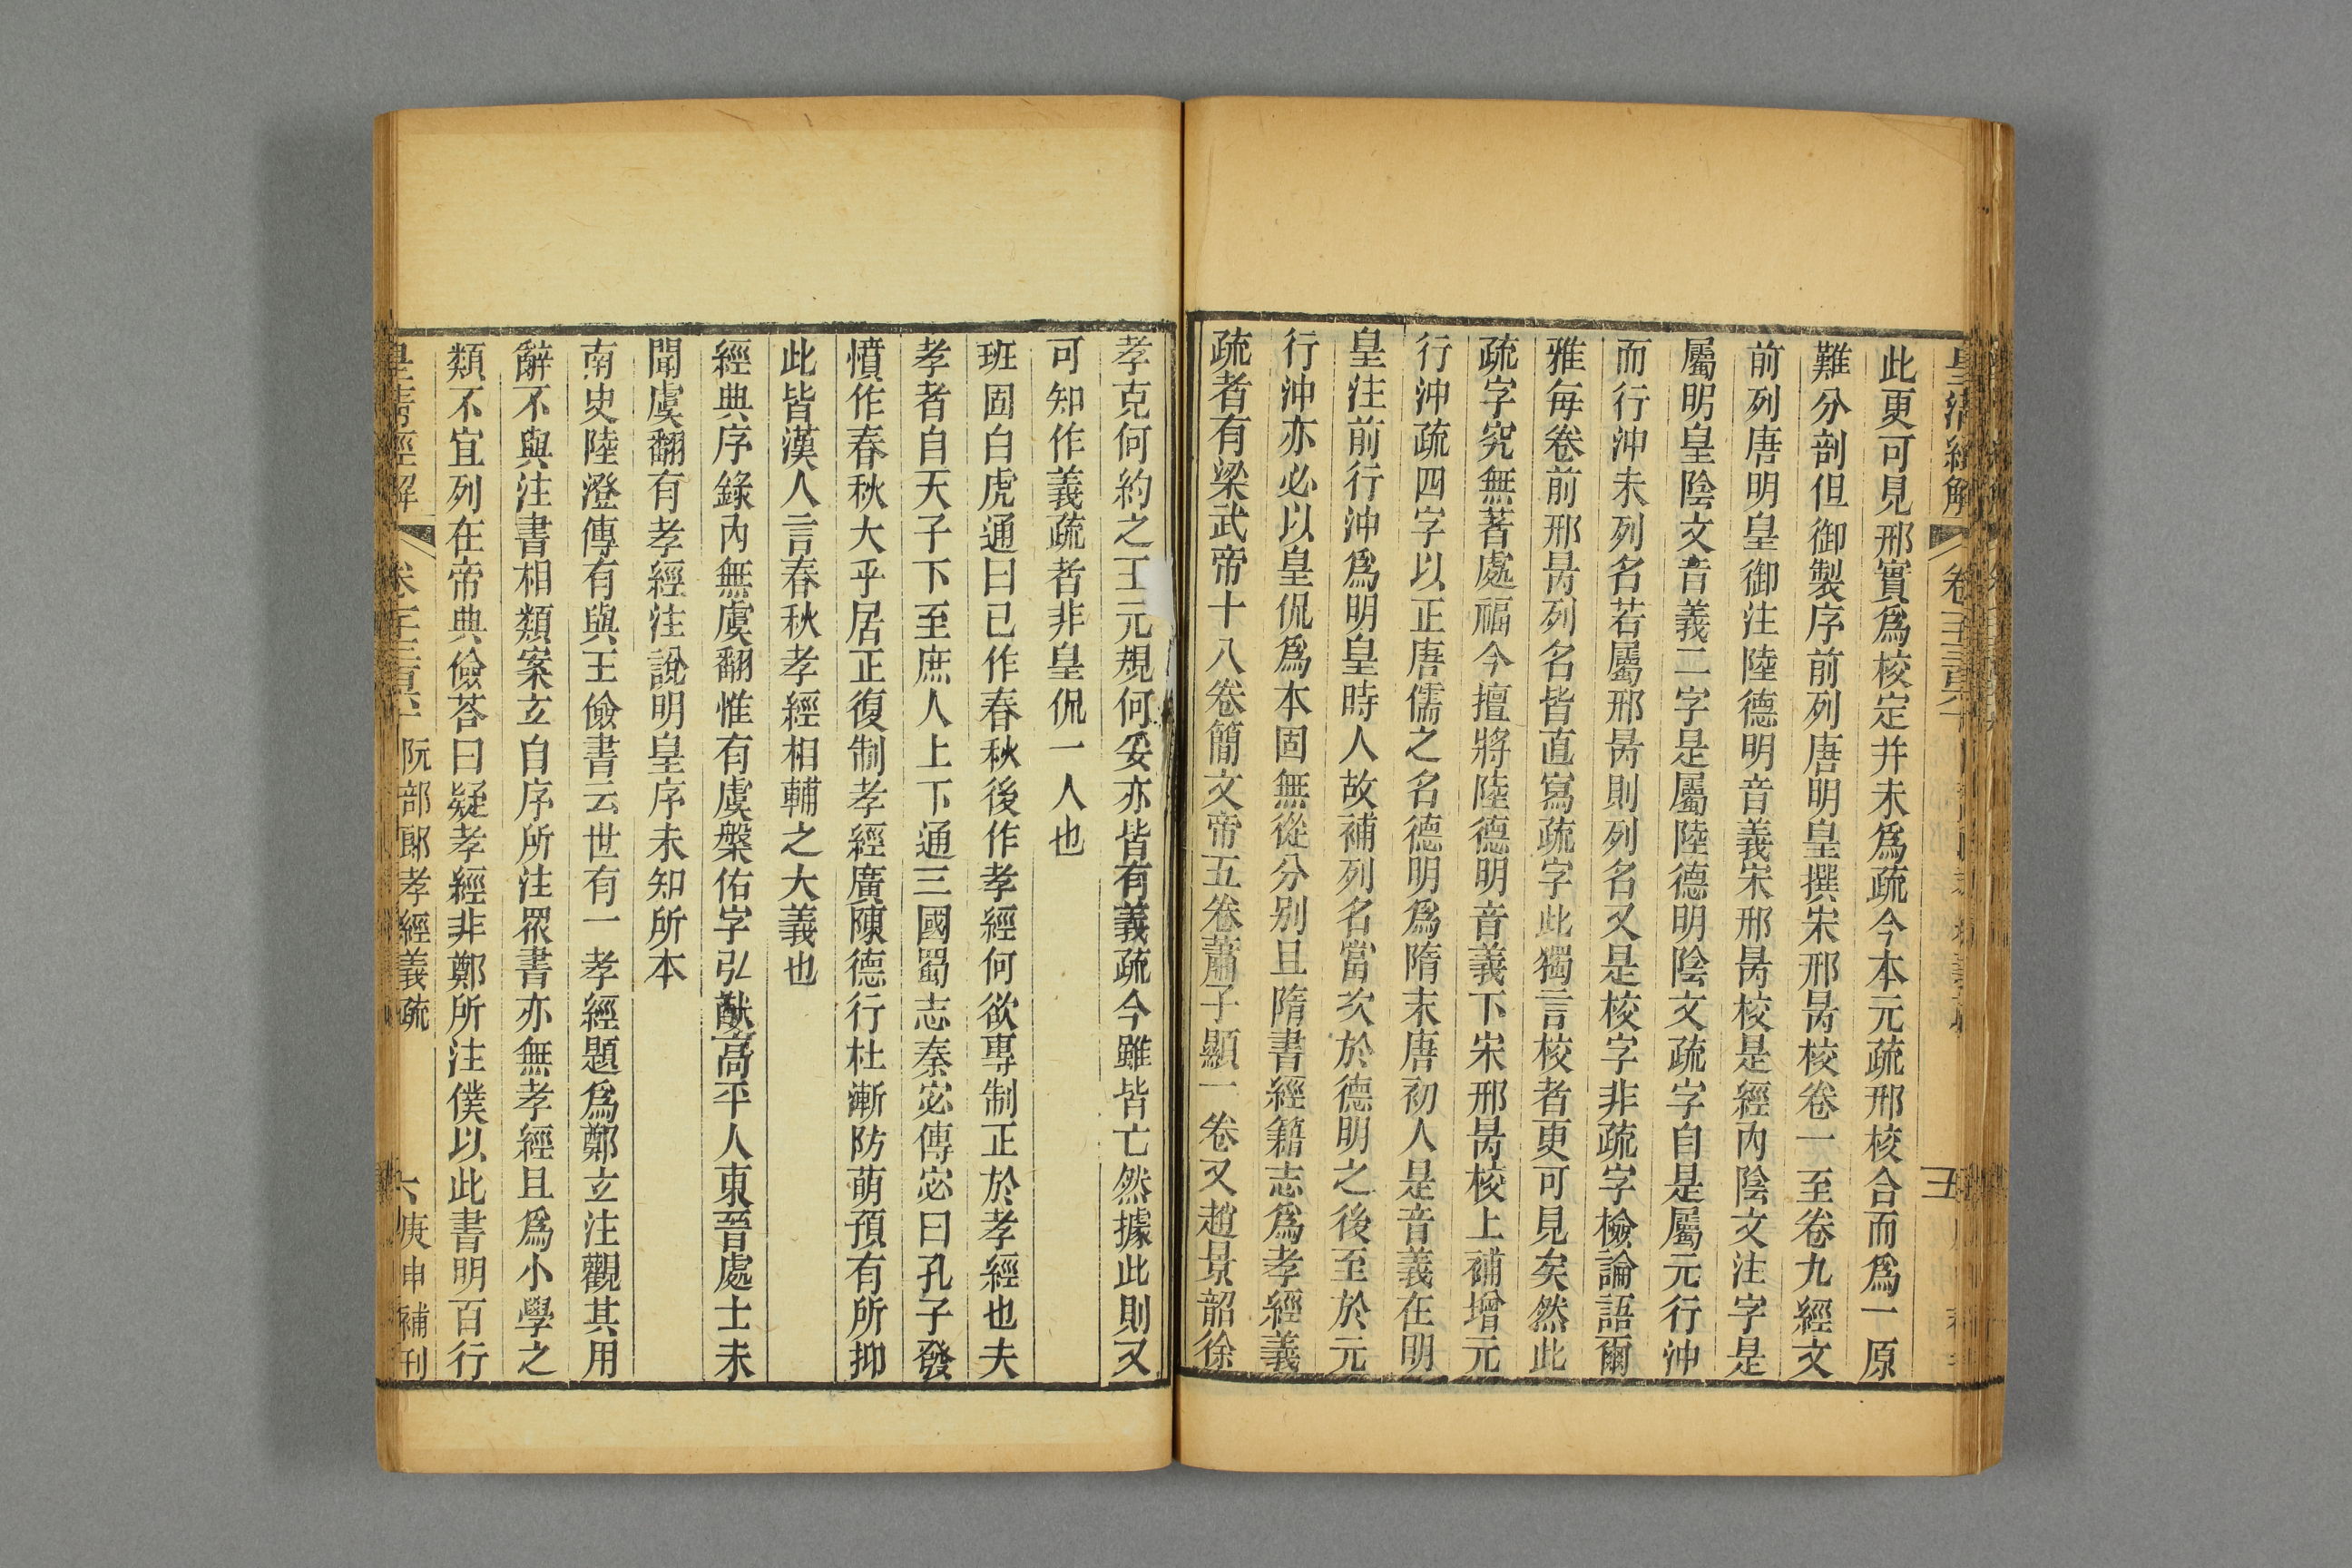 皇清經解 卷一千三百六十 五
此更可見邢實爲校定并未爲疏今本元疏邢校合而爲一原
難分剖但御製序前列唐明皇撰宋邢昺校卷一至卷九經文
前列唐明皇御注陸德明音義宋邢昺校是經內陰文注字是
屬明皇陰文音義二字是屬陸德明陰文疏字自是屬元行沖
而行沖未列名若屬邢昺則列名又是校字非疏字檢論語爾
雅每卷前邢昺列名皆直寫疏字此獨言校者更可見矣然此
疏字究無著處福今擅將陸德明音義下宋邢昺校上補增元
行沖疏四字以正唐儒之名德明爲隋末唐初人是音義在明
皇注前行沖爲明皇時人故補列名當次於德明之後至於元
行沖亦必以皇侃爲本固無從分别且隋書經籍志爲孝經義
疏者有梁武帝十八卷簡文帝五卷蕭子顯一卷又趙景韶徐
孝克何約之王元規何妥亦皆有義疏今雖皆亡然據此則又
可知作義疏者非皇侃一人也
班固白虎通曰已作春秋後作孝經何欲專制正於孝經也夫
孝者自天子下至庶人上下通三國蜀志秦宓傳宓曰孔子發
憤作春秋大乎居正復制孝經廣陳德行杜漸防萌預有所抑
此皆漢人言春秋孝經相輔之大義也
經典序錄內無虞翻惟有虞槃佑字弘猷高平人東晉處士未
聞虞翻有孝經注說明皇序未知所本
南史陸澄傳有與王儉書云世有一孝經題爲鄭玄注觀其用
辭不與注書相類案玄自序所注眾書亦無孝經且爲小學之
類不宜列在帝典儉荅曰疑孝經非鄭所注僕以此書明百行
皇清經解 卷一千三百六十 阮部郎孝經義疏 六 庚申補刊